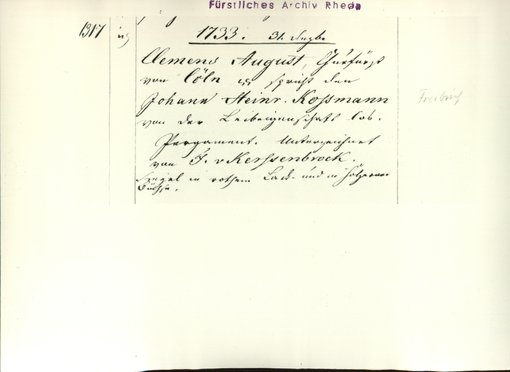 Fürstliches Archiv Rheda
1317
1733. 31. Dezbr
Clemens August, Churfürst
von Cöln etc spricht den
Johann Heinr. Kossmann
von der Leibeigenschaft los.
Pergament. Unterzeichnet
von J. v Kerssenbrock.
Siegel in rothem Lack und in hölzerner
Büchse.
Freibrief